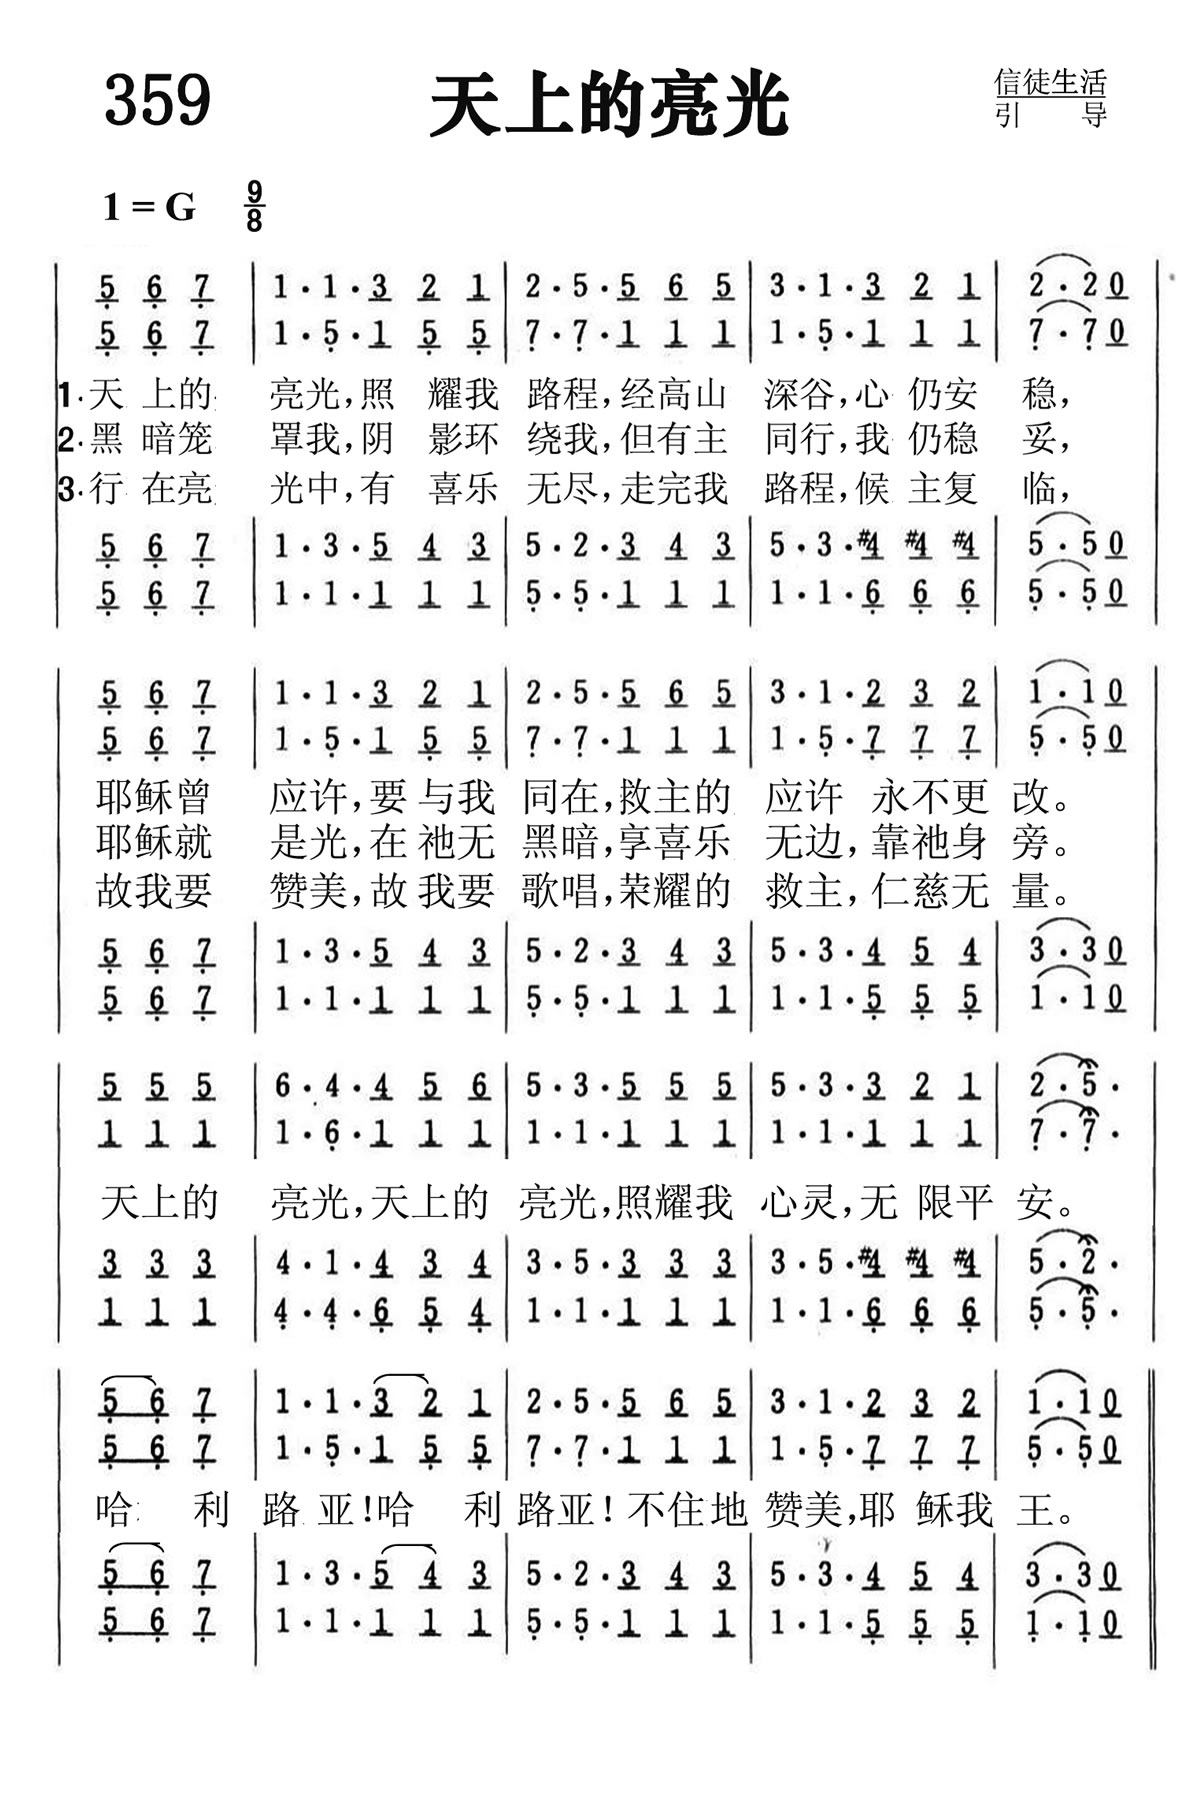 359 天上的亮光 信徒生活
引 导
1 = G 9/8
5 6 7 | 1 · 1 · 3 2 1 | 2 · 5 · 5 6 5 | 3 · 1 · 3 2 1 | 2 · 2 0 |
5 6 7 | 1 · 5 · 1 5 5 | 7 · 7 · 1 1 1 | 1 · 5 · 1 1 1 | 7 · 7 0 |
1.天 上的 亮光,照 耀我 路程,经高山 深谷,心 仍安 稳,
2.黑 暗笼 罩我,阴 影环 绕我,但有主 同行,我 仍稳 妥,
3.行 在亮 光中,有 喜乐 无尽,走完我 路程,候 主复 临,
5 6 7 | 1 · 3 · 5 4 3 | 5 · 2 · 3 4 3 | 5 · 3 · #4 #4 #4 | 5 · 5 0 |
5 6 7 | 1 · 1 · 1 1 1 | 5 · 5 · 1 1 1 | 1 · 1 · 6 6 6 | 5 · 5 0 |
5 6 7 | 1 · 1 · 3 2 1 | 2 · 5 · 5 6 5 | 3 · 1 · 2 3 2 | 1 · 1 0 |
5 6 7 | 1 · 5 · 1 5 5 | 7 · 7 · 1 1 1 | 1 · 5 · 7 7 7 | 5 · 5 0 |
耶稣曾 应许,要 与我 同在,救主的 应许 永不更 改。
耶稣就 是光,在 祂无 黑暗,享喜乐 无边,靠祂身 旁。
故我要 赞美,故 我要 歌唱,荣耀的 救主,仁慈无 量。
5 6 7 | 1 · 3 · 5 4 3 | 5 · 2 · 3 4 3 | 5 · 3 · 4 5 4 | 3 · 3 0 |
5 6 7 | 1 · 1 · 1 1 1 | 5 · 5 · 1 1 1 | 1 · 1 · 5 5 5 | 1 · 1 0 |
5 5 5 | 6 · 4 · 4 5 6 | 5 · 3 · 5 5 5 | 5 · 3 · 3 2 1 | 2 · 5 · |
1 1 1 | 1 · 6 · 1 1 1 | 1 · 1 · 1 1 1 | 1 · 1 · 1 1 1 | 7 · 7 · |
天上的 亮光,天上的 亮光,照耀我 心灵,无 限平 安。
3 3 3 | 4 · 1 · 4 3 4 | 3 · 5 · 3 3 3 | 3 · 5 · #4 #4 #4 | 5 · 2 · |
1 1 1 | 4 · 4 · 6 5 4 | 1 · 1 · 1 1 1 | 1 · 1 · 6 6 6 | 5 · 5 · |
5 6 7 | 1 · 1 · 3 2 1 | 2 · 5 · 5 6 5 | 3 · 1 · 2 3 2 | 1 · 1 0 ||
5 6 7 | 1 · 5 · 1 5 5 | 7 · 7 · 1 1 1 | 1 · 5 · 7 7 7 | 5 · 5 0 ||
哈 利 路 亚!哈 利 路亚! 不住地 赞美,耶 稣我 王。
5 6 7 | 1 · 3 · 5 4 3 | 5 · 2 · 3 4 3 | 5 · 3 · 4 5 4 | 3 · 3 0 ||
5 6 7 | 1 · 1 · 1 1 1 | 5 · 5 · 1 1 1 | 1 · 1 · 5 5 5 | 1 · 1 0 ||